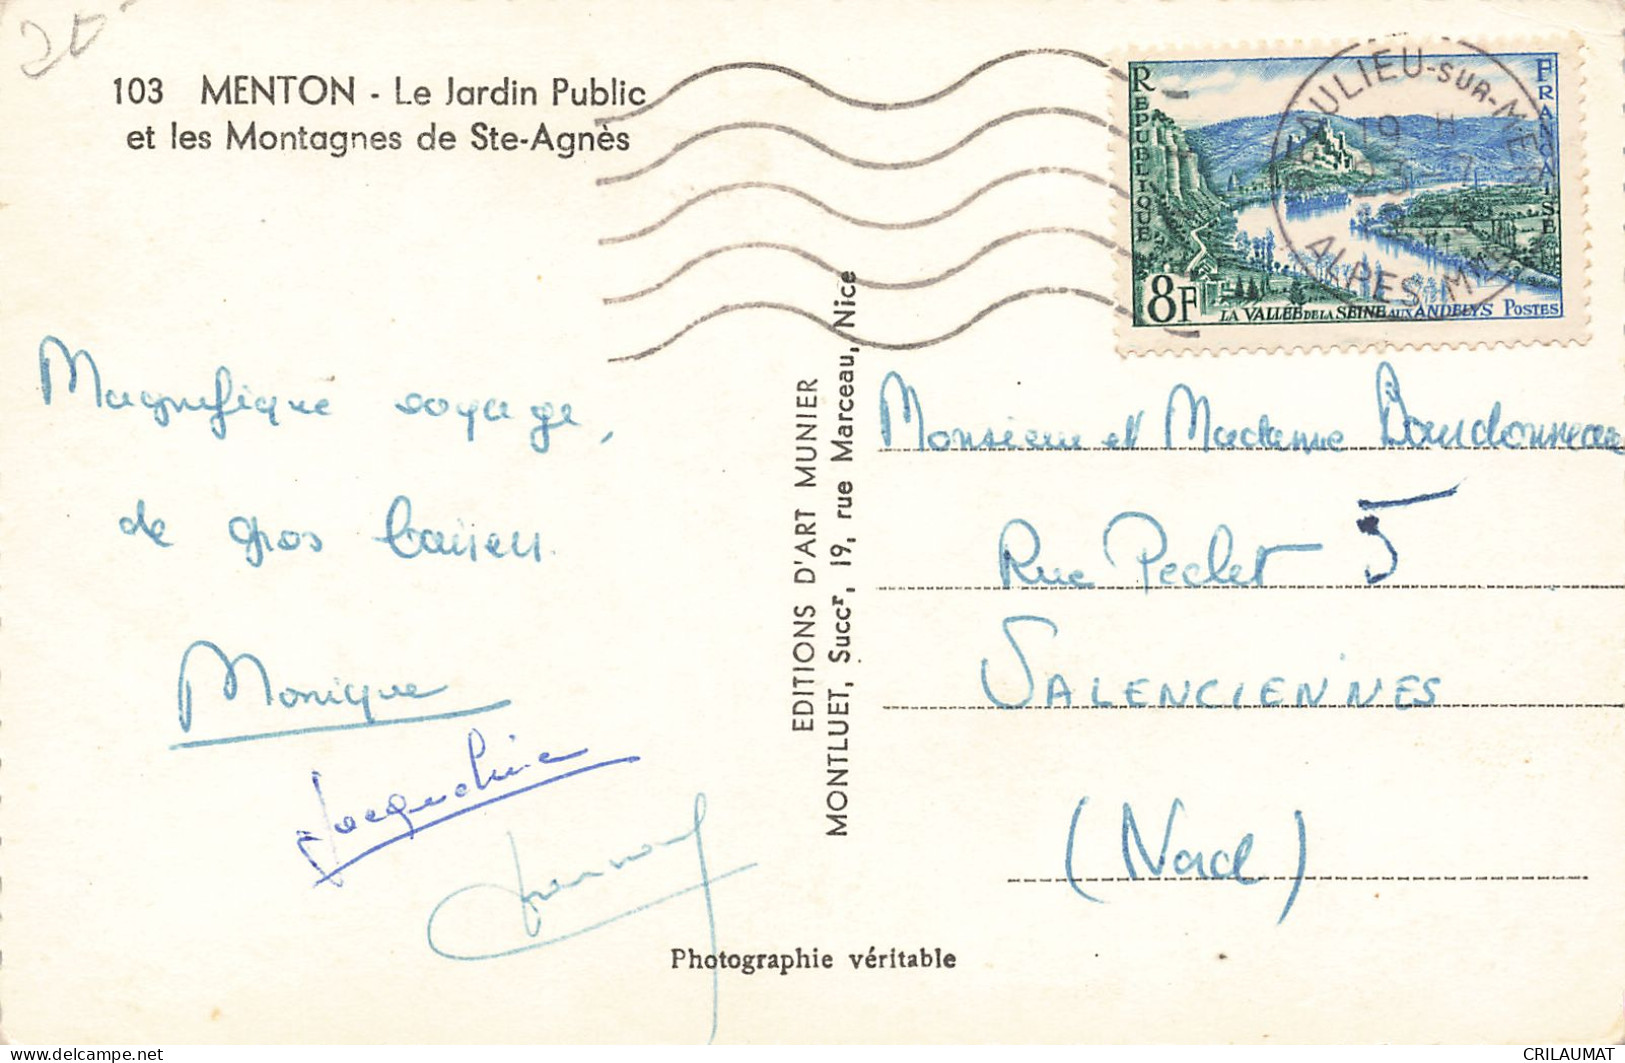 20
103 MENTON - Le Jardin Public
et les Montagnes de Ste-Agnès
RÉPUBLIQUE
FRANÇAISE
8F
LA VALLÉE DE LA SEINE AUX ANDELYS POSTES
BEAULIEU-SUR-MER
19 H
23-7
ALPES-MMES
Magnifique voyage,
de gros baisers
Monique
Jacqueline
EDITIONS D'ART MUNIER
MONTLUET, Succr, 19, rue Marceau, Nice
Monsieur et Madame Bourdonneau
Rue Peclet 5
VALENCIENNES
(Nord)
Photographie véritable
delcampe.net
CRILAUMAT